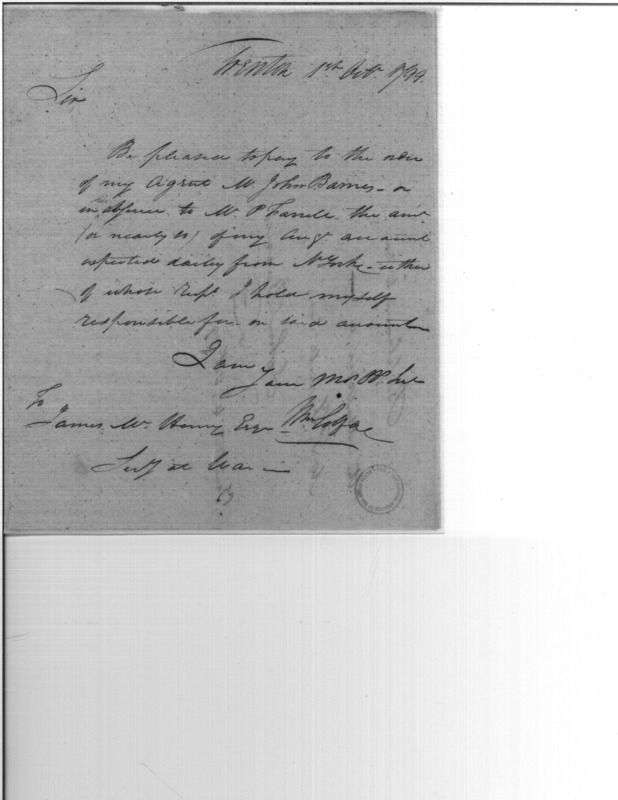 Trenton 1st Octr 1799.
Sir
Be pleased to pay to the order
of my Agent Mr. John Barnes - or
in absence to Mr P Farrell the amt
(or nearly so) of my Augt account
expected daily from N York - either
of whose rept I hold myself
responsible for on said account
I am
Your Mo. Ob. Set
Wm Colfax
To
James Mc Henry Esqr
Secy at War